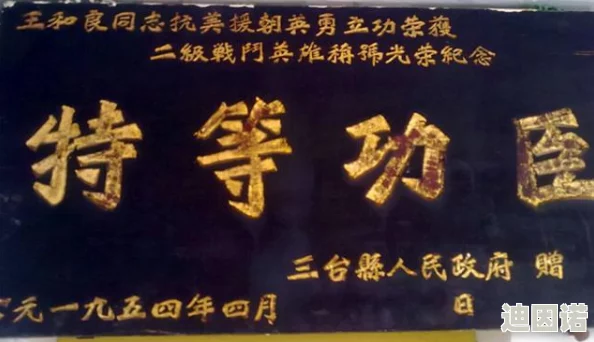 王和良同志抗美援朝英勇立功荣獲
二級戰鬥英雄稱號光荣紀念
特等功臣
三台縣人民政府 贈
公元一九五四年四月 日
迪因诺